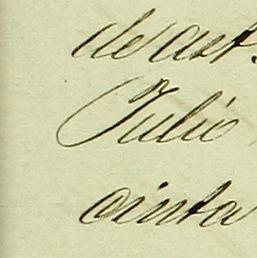 de ast
Julio
cinta